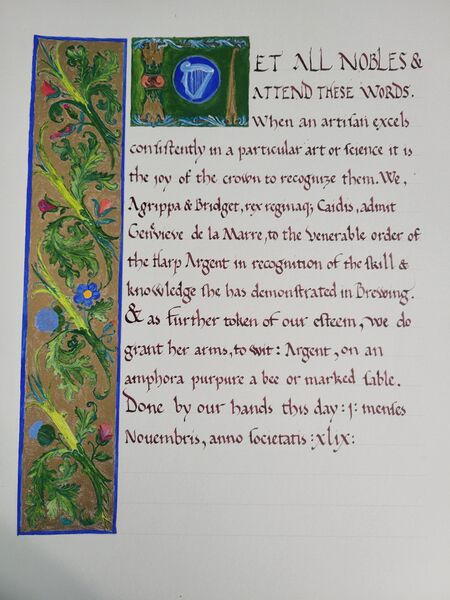 LET ALL NOBLES &
ATTEND THESE WORDS.
When an artisan excels
consistently in a particular art or science it is
the joy of the crown to recognize them. We,
Agrippa & Bridget, rex reginaq; Caidis, admit
Genevieve de la Marre, to the venerable order of
the Harp Argent in recognition of the skill &
knowledge she has demonstrated in Brewing.
& as further token of our esteem, we do
grant her arms, to wit: Argent, on an
amphora purpure a bee or marked sable.
Done by our hands this day :j: menses
Novembris, anno societatis :xlix: